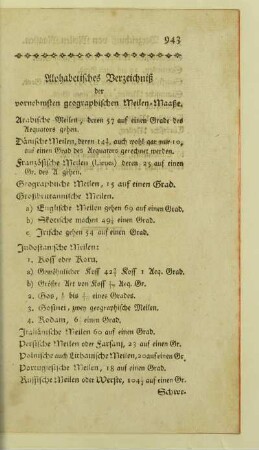 943
Alphabetisches Verzeichniß
der
vornehmsten geographischen Meilen-Maaße.
Arabische Meilen, deren 57 auf einen Grad des
Aequators gehen.
Dänische Meilen, deren 14⅘, auch wohl gar nur 10,
auf einen Grad des Aequators gerechnet werden.
Französische Meilen (Lieues) deren 25 auf einen
Gr. des A. gehen.
Geographische Meilen, 15 auf einen Grad.
Großbritannische Meilen.
a) Englische Meilen gehen 69 auf einen Grad.
b) Skotische machen 49½ einen Grad.
c) Irische gehen 54 auf einen Grad.
Indostanische Meilen:
1. Koß oder Korn.
a) Gewöhnlicher Koß 42⅔ Koß 1 Aeq. Grad.
b) Größre Art von Koß Aeq. Gr.
2. Gos, bis eines Grades.
3. Gosinet, zwey geographische Meilen.
4. Kodam, einen Grad.
Italiänische Meilen 60 auf einen Grad.
Persische Meilen oder Farsanj, 23 auf einen Gr.
Polnische auch Lithauische Meilen, 20 auf einen Gr.
Portugiesische Meilen, 18 auf einen Grad.
Russische Meilen oder Werste, 104½ auf einen Gr.
Schwe-